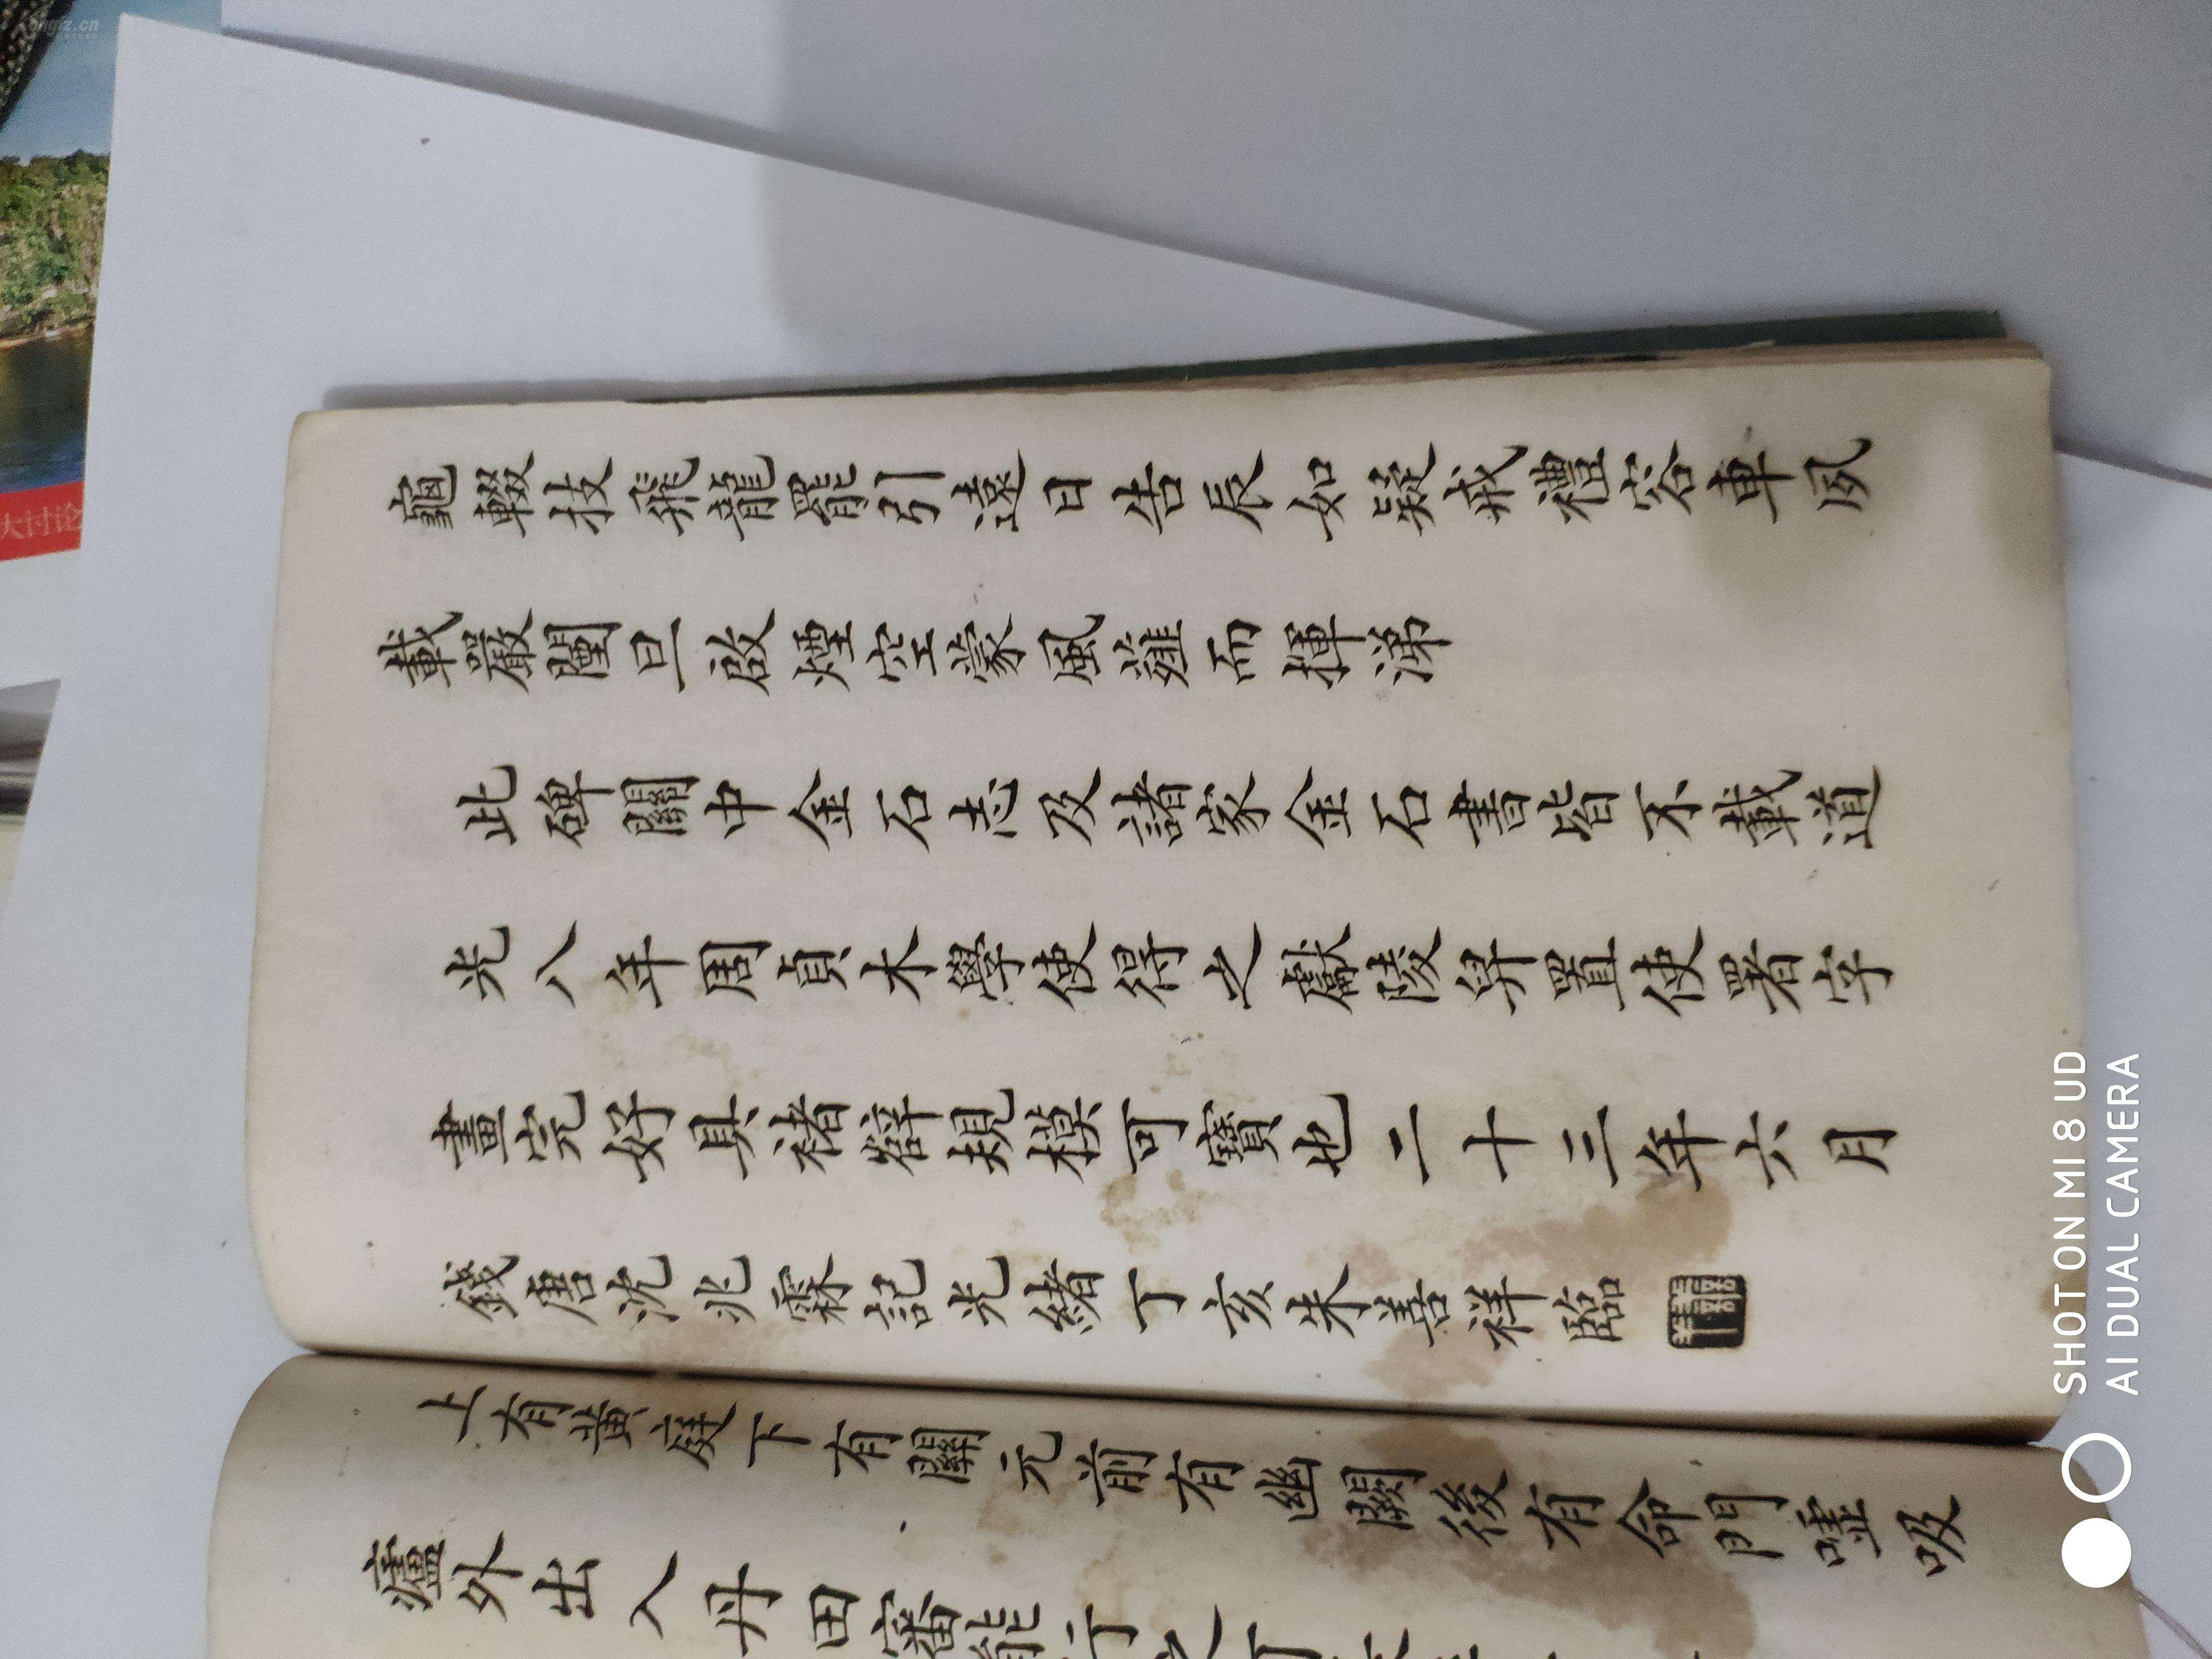 輟扙飛龍罷引遠日告辰如疑戒禮容車夙
載嚴闉旦啟煙空蒙風而揮涕
此碑關中金石志及諸家金石書皆不載道
光八年周貞木學使得之獻陵舁置使署字
畫完好具褚薛規模可寶也二十三年六月
錢唐沈兆霖記光緒丁亥朱善祥臨
上有黃庭下有關元前有幽闕後有命門噓吸
廬外出入丹田審能行之可長
大讨论
SHOT ON MI 8 UD
AI DUAL CAMERA